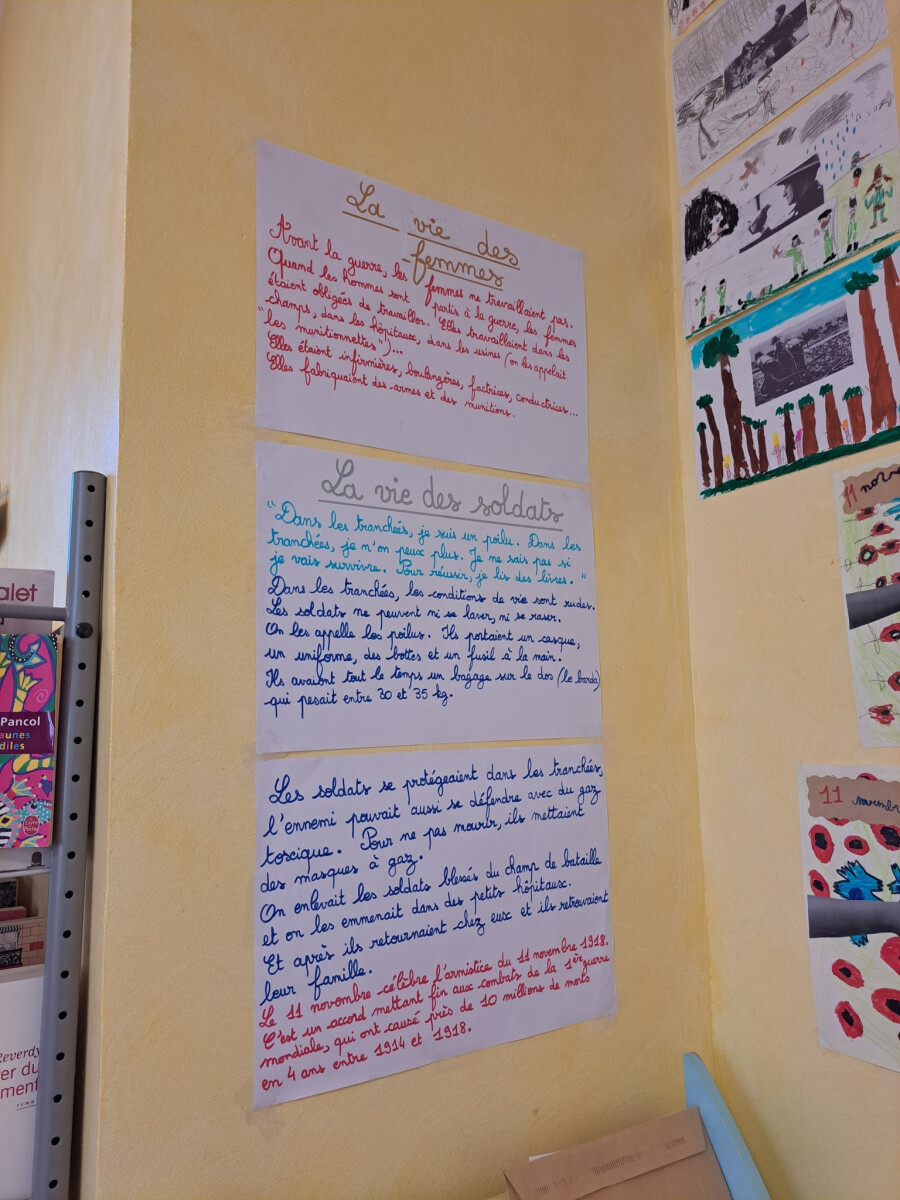 La vie des
femmes
Avant la guerre, les femmes ne travaillaient pas.
Quand les hommes sont partis à la guerre, les femmes
étaient obligées de travailler. Elles travaillaient dans les
champs, dans les hôpitaux, dans les usines (on les appelait
"les munitionnettes")...
Elles étaient infirmières, boulangères, factrices, conductrices...
Elles fabriquaient des armes et des munitions.
La vie des soldats
"Dans les tranchées, je suis un poilu. Dans les
tranchées, je n'en peux plus. Je ne sais pas si
je vais survivre. Pour réussir, je lis des livres."
Dans les tranchées, les conditions de vie sont rudes.
Les soldats ne peuvent ni se laver, ni se raser.
On les appelle les poilus. Ils portaient un casque,
un uniforme, des bottes et un fusil à la main.
Ils avaient tout le temps un bagage sur le dos (le barda)
qui pesait entre 30 et 35 kg.
Les soldats se protégeaient dans les tranchées,
l'ennemi pouvait aussi se défendre avec du gaz
toxcique. Pour ne pas mourir, ils mettaient
des masques à gaz.
On enlevait les soldats blessés du champ de bataille
et on les emmenait dans des petits hôpitaux.
Et après ils retournaient chez eux et ils retrouvaient
leur famille.
Le 11 novembre célèbre l'armistice du 11 novembre 1918.
C'est un accord mettant fin aux combats de la 1ère guerre
mondiale, qui ont causé près de 10 millions de morts
en 4 ans entre 1914 et 1918.
11 nov
11 novembr
alet
Pancol
aunes
diles
Reverdy
er du
ment